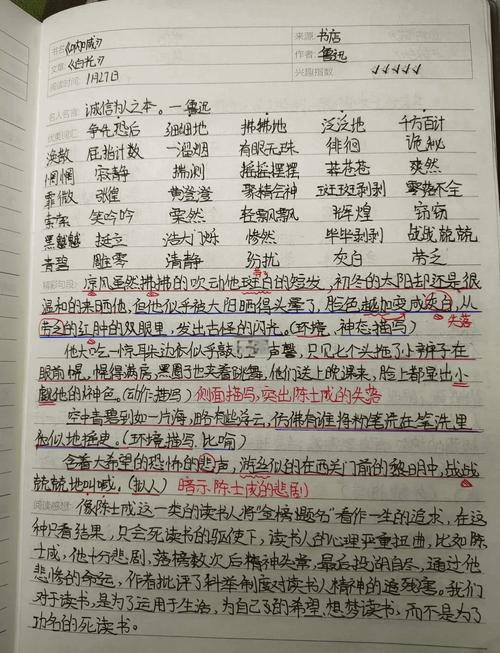 书名:《呐喊》 来源:书店
文章:《白光》 作者:鲁迅
阅读时间:1月27日 兴趣指数 ✓✓✓✓✓
名人名言:诚信为人之本。—鲁迅
优美词汇: 争先恐后 细细地 拂拂地 泛泛地 千方百计
涣散 屈指计数 一溜烟 有眼无珠 徘徊 诡秘
惘惘 寂静 拂测 摇摇摆摆 莽苍苍 爽然
霏微 张惶 黄澄澄 聚精会神 斑斑剥剥 零落不全
索索 笑吟吟 栗然 轻飘飘 辉煌 窃窃
黑魆魆 挺立 浩大闪烁 惨然 毕毕剥剥 战战兢兢
青碧 雕零 清静 纷扰 灰白 劳乏
精彩句段:凉风虽然拂拂的吹动他斑白的短发,初冬的太阳却还是很
温和的来晒他。但他似乎被太阳晒得头晕了,脸色越加变成灰白,从
劳乏的红肿的双眼里,发出古怪的闪光。(环境、神态描写) 失落
他大吃一惊,耳边似乎敲了一声磬,只见七个头拖了小辫子在
眼前幌,幌得满房,黑圈子也夹着跳舞。他们送上晚课来,脸上都显出小
觑他的神色。(动作描写) 侧面描写,突出陈士成的失落
空中青碧到如一片海,略有些浮云,仿佛有谁将粉笔洗在笔洗里
似的摇曳。(环境描写、比喻)
含着大希望的恐怖的悲声,游丝似的在西关门前的黎明中,战战
兢兢地叫喊。(拟人) 暗示陈士成的悲剧
阅读感想:像陈士成这一类的读书人将“金榜题名”看作一生的追求,在这
种只看结果,只会死读书的驱使下,读书人的心理严重扭曲,比如陈
士成,他十分悲剧,落榜数次后精神失常,最后投湖自尽,通过他
悲惨的命运,作者批评了科举制度对读书人精神的残害。我们
对于读书,是为了运用于生活,为自己的希望、梦想读书,而不是为了
功名的死读书。